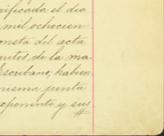 rificada el dia
mil ochocien
onsta del acta
antes de la ma
escribano, haben
misma junta
oponinto y sus